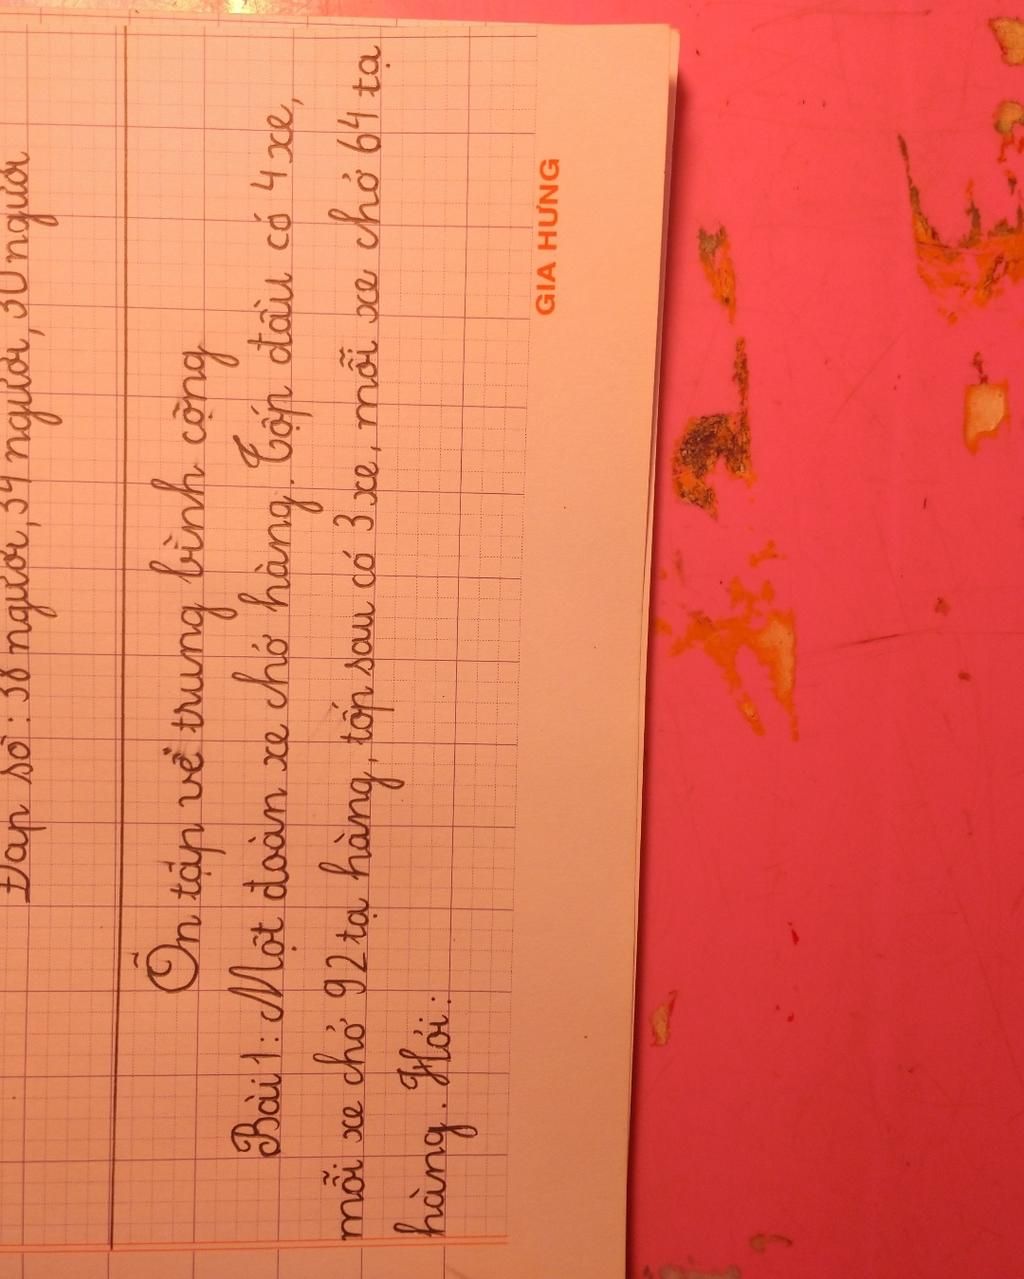 Đáp số: 38 người, 34 người, 30 người
Ôn tập về trung bình cộng
Bài 1: Một đoàn xe chở hàng. Tốp đầu có 4 xe,
mỗi xe chở 92 tạ hàng, tốp sau có 3 xe, mỗi xe chở 64 tạ
hàng. Hỏi:
GIA HƯNG